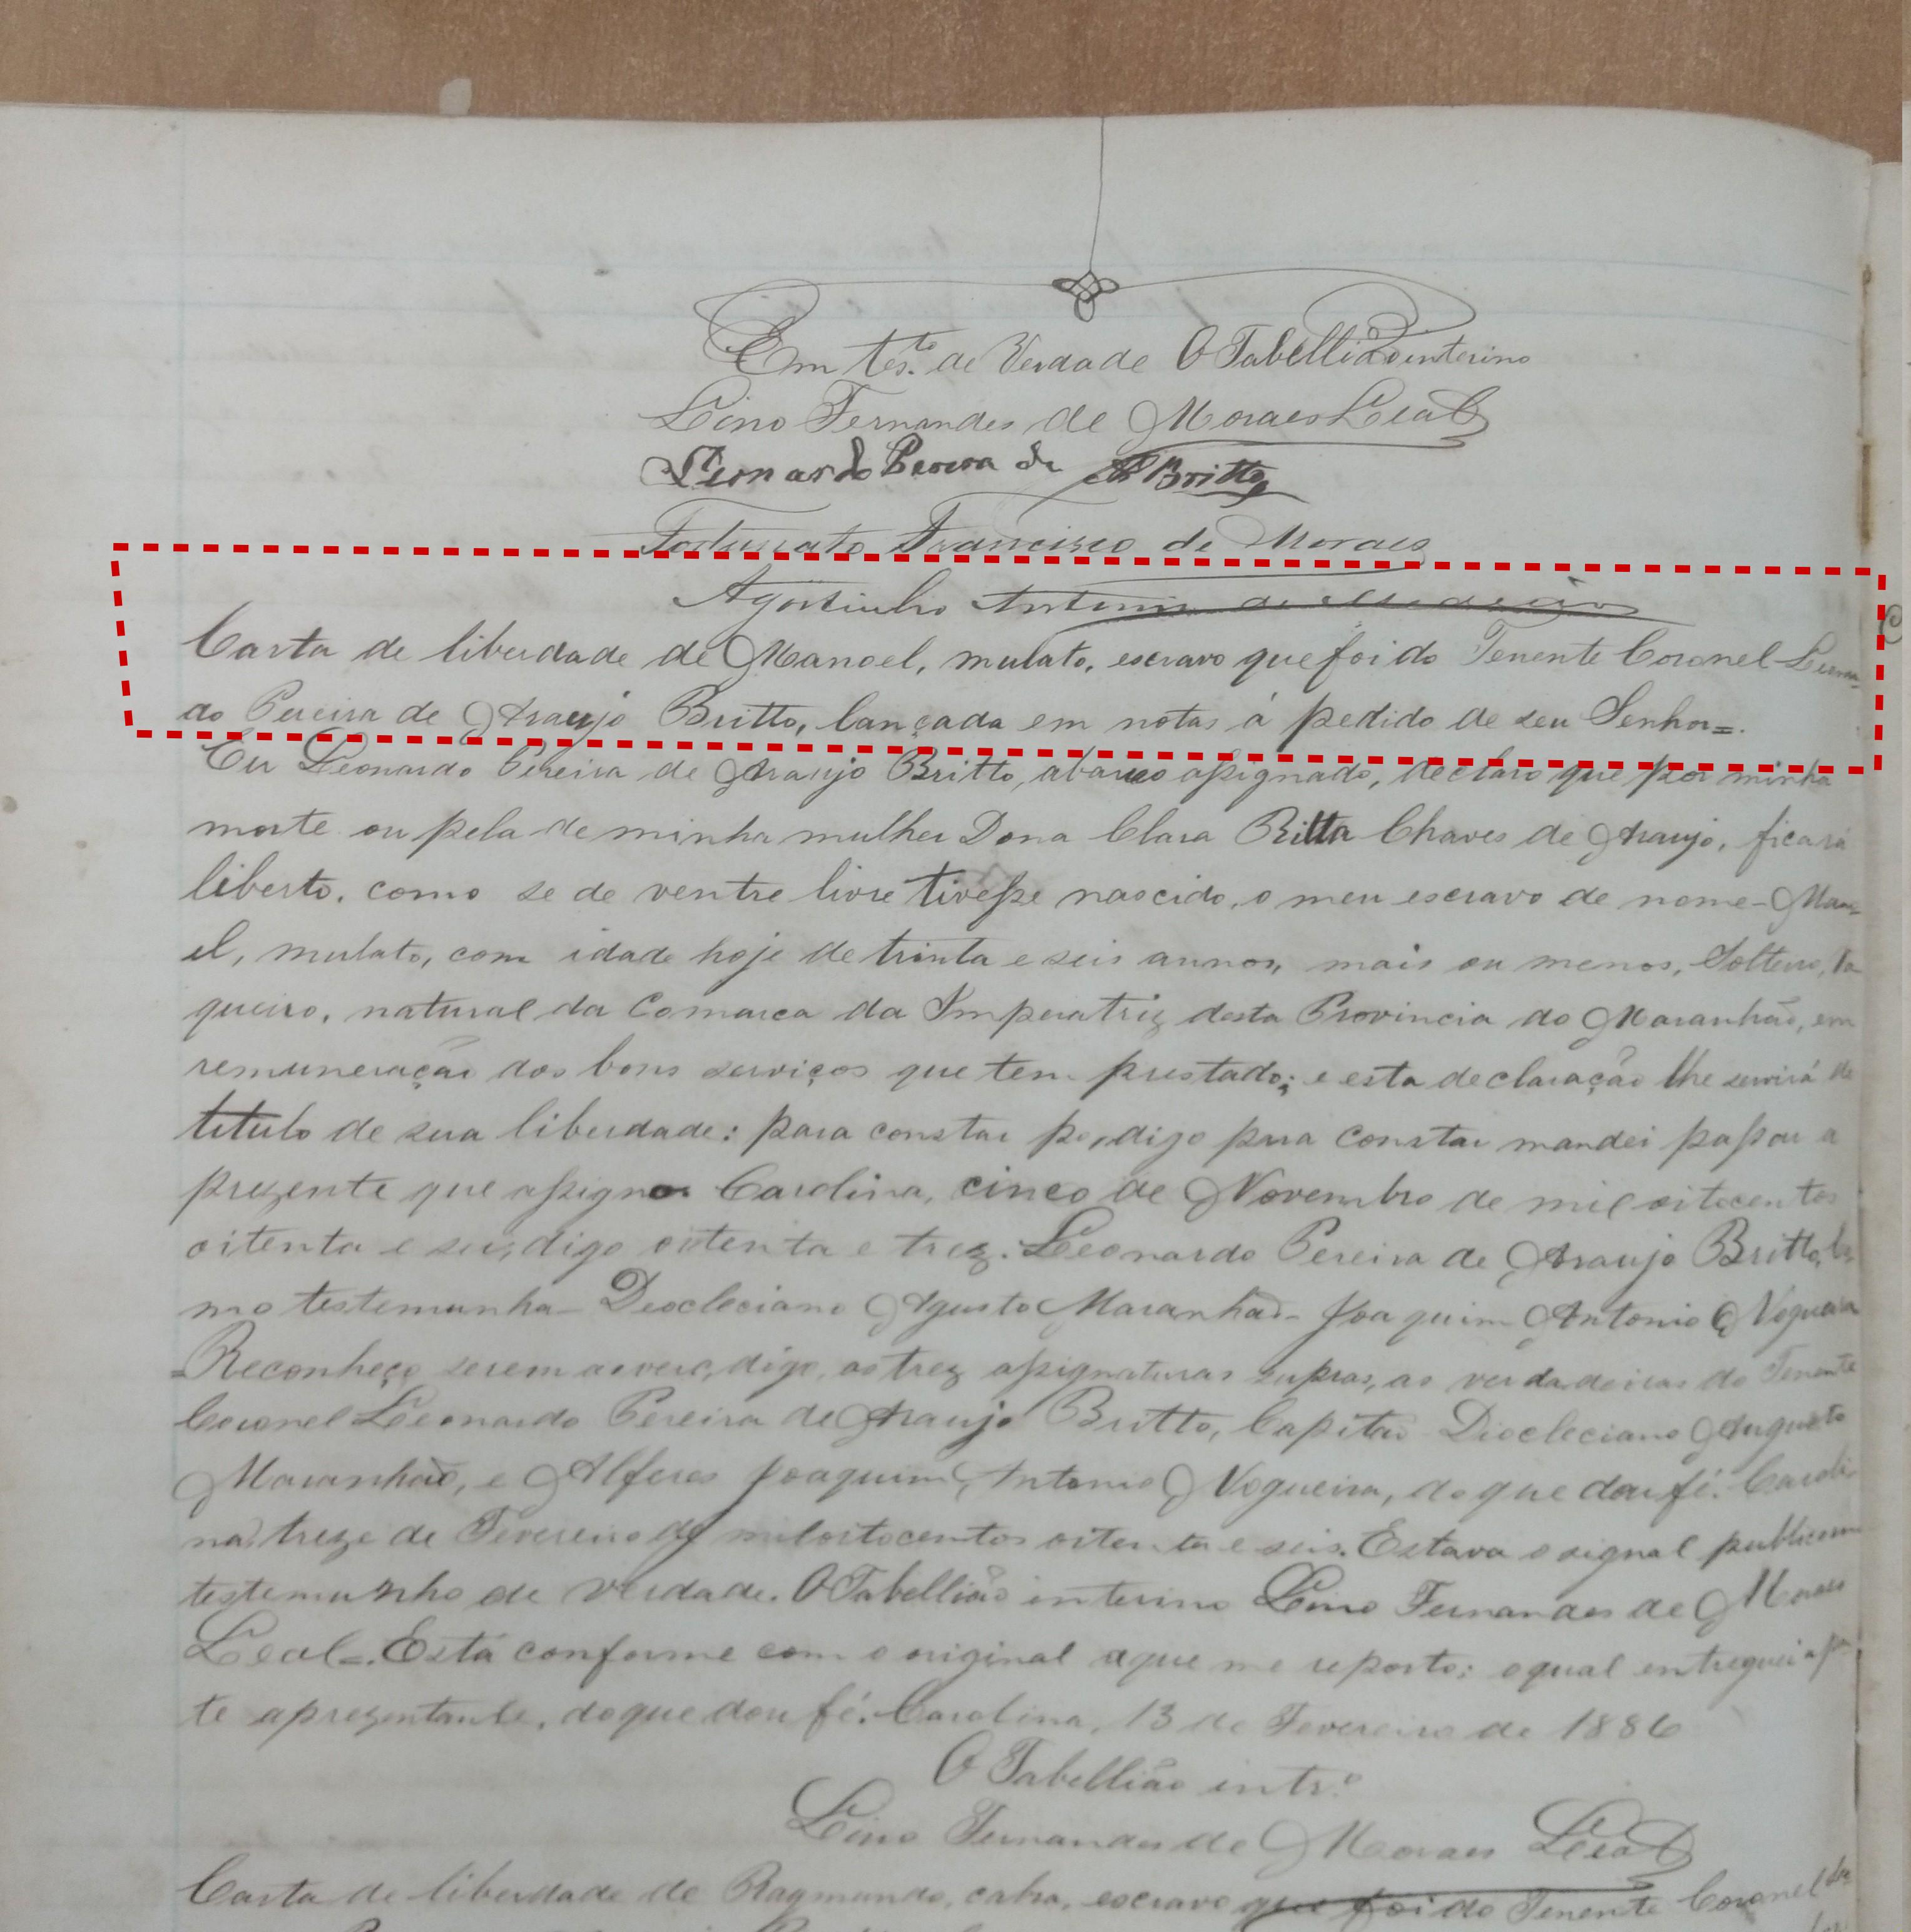 Em tes.to de Verdade O Tabellião interino
Lino Fernandes de Moraes Leal
Leonardo Pereira de A Britto
Fortunato Francisco de Moraes
Agostinho Antonio de
Carta de liberdade de Manoel, mulato, escravo que foi do Tenente Coronel Leonar-
do Pereira de Araujo Britto, lançada em notas á pedido de seu Senhor=.
Eu Leonardo Pereira de Araujo Britto, abaixo assignado, declaro que por minha
morte ou pela de minha mulher Dona Clara Ritta Chaves de Araujo, ficará
liberto, como se de ventre livre tivesse nascido, o meu escravo de nome - Mano-
el, mulato, com idade hoje de trinta e seis annos, mais ou menos, Solteiro, Va
queiro, natural da Comarca da Imperatriz desta Provincia do Maranhão, em
remuneração dos bons serviços que tem prestado; e esta declaração lhe servirá de
titulo de sua liberdade: para constar po, digo para constar mandei passar a
prezente que assigno. Carolina, cinco de Novembro de mil oitocentos
oitenta e seis, digo oitenta e trez. Leonardo Pereira de Araujo Britto, Co-
mo testemunha - Deocleciano Agusto Maranhão - Joaquim Antonio Nogueira
Reconheço serem as verd, digo, as trez assignaturas supras, as verdadeiras do Tenente
Coronel Leonardo Pereira de Araujo Britto, Capitão Diocleciano Augusto
Maranhão, e Alferes Joaquim Antonio Nogueira, do que dou fé. Caroli-
na, treze de Fevereiro de mil oitocentos oitenta e seis. Estava o signal publico em
testemunho de verdade. O Tabellião interino Lino Fernandes de Moraes
Leal=. Está conforme com o original a que me reporto; o qual entreguei a par
te aprezentante, do que dou fé. Carolina, 13 de Fevereiro de 1886
O Tabellião intr.o
Lino Fernandes de Moraes Leal
Carta de liberdade de Raymundo, cabra, escravo que foi do Tenente Coronel